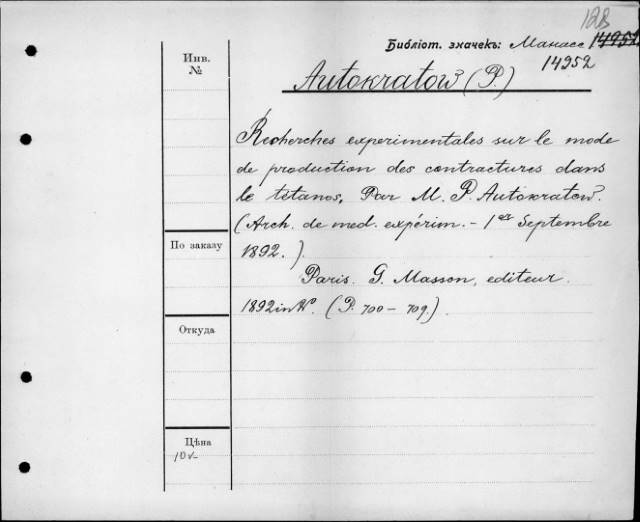 128
Библіот. значекъ: Манасс 14952
14952
Инв.
№
Autokratow (P.)
Recherches experimentales sur le mode
de production des contractures dans
le tétanos. Par M. P. Autokratow.
(Arch. de med. expérim. - 1er Septembre
1892.)
По заказу
Paris. G. Masson, editeur.
1892 in (P. 700 – 709.)
Откуда
Цѣна